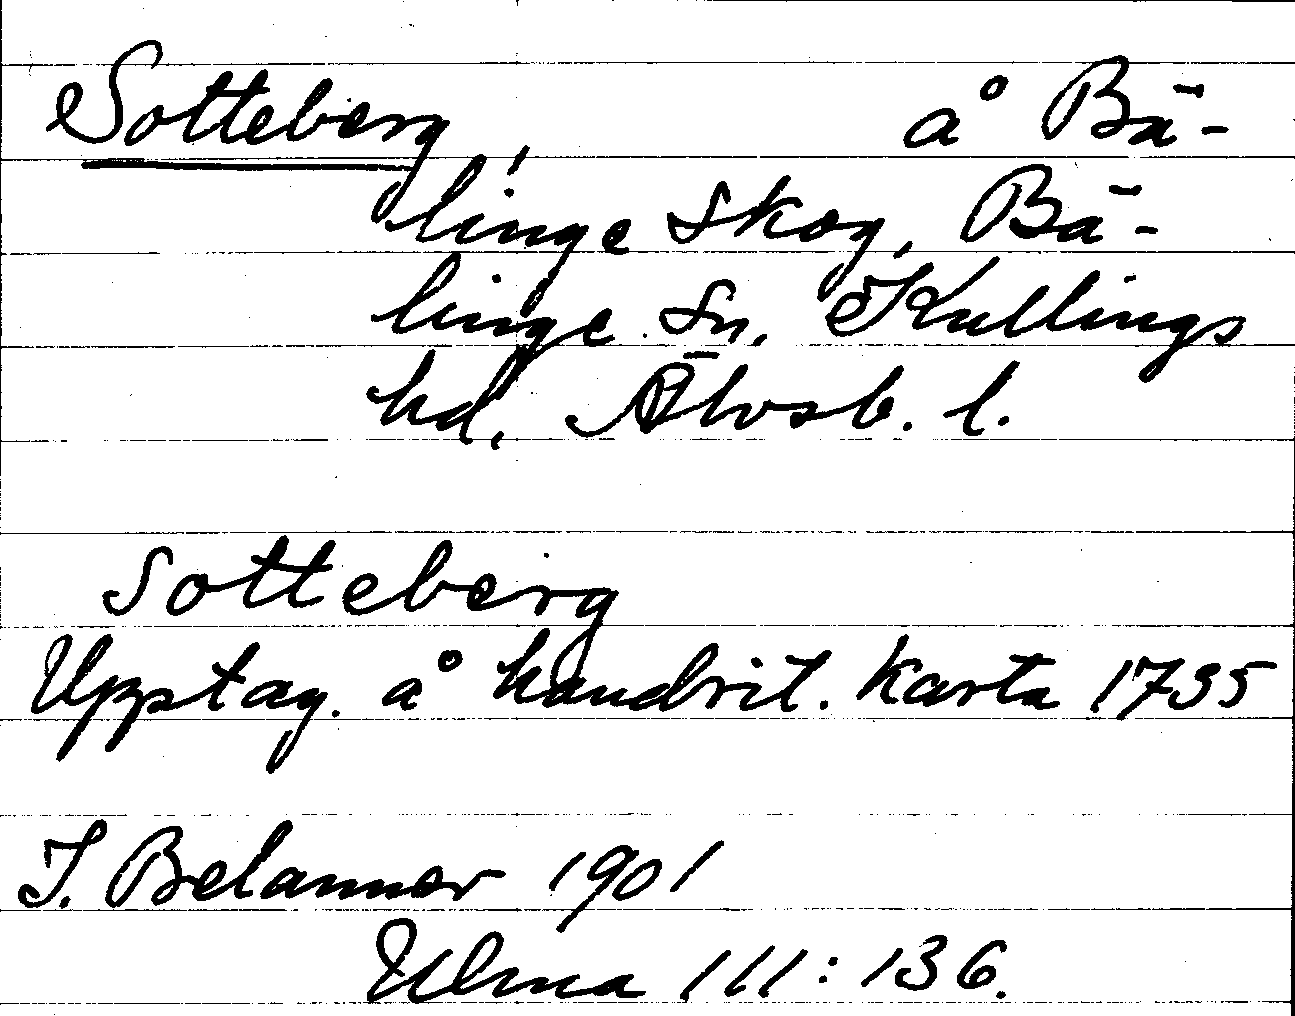 Sotteberg, å Bä-
linge skog, Bä-
linge sn, Kullings
hd, Älvsb. l.
Sotteberg
Upptag. å handrit. karta 1735
T. Belanner 1901
Ulma 111:136.